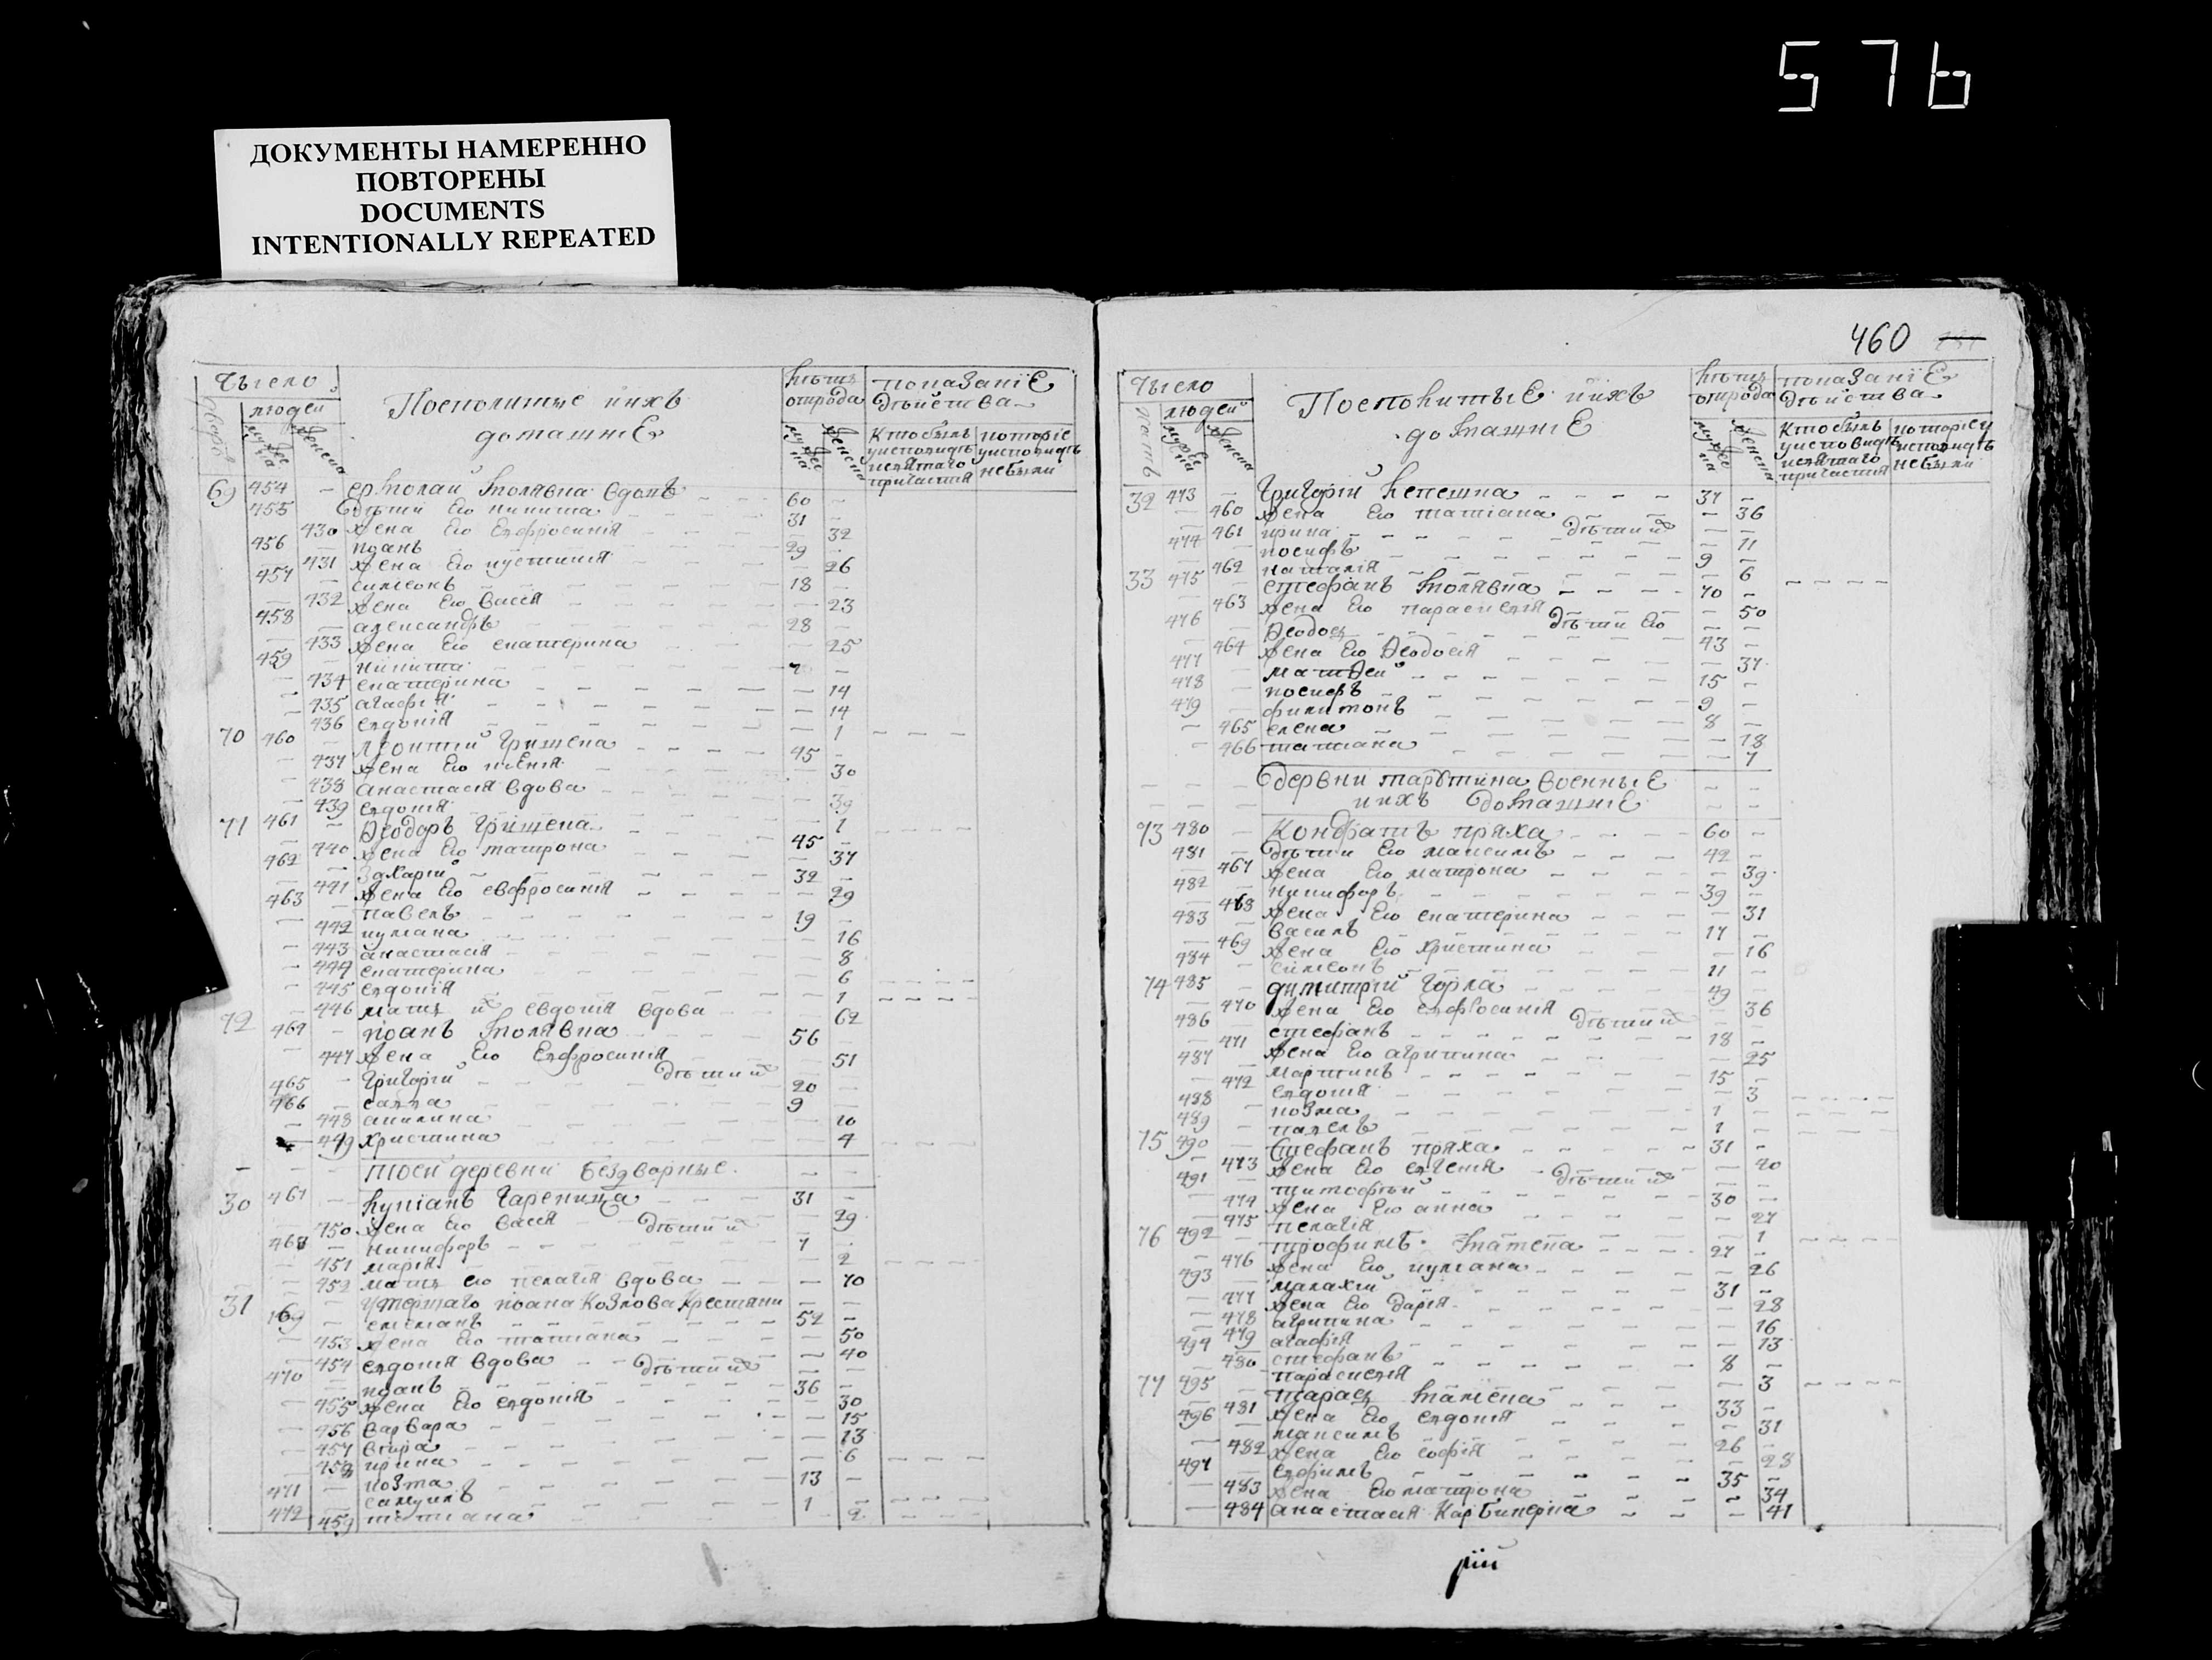 576
ДОКУМЕНТЫ НАМЕРЕННО
ПОВТОРЕНЫ
DOCUMENTS
INTENTIONALLY REPEATED
Число
людей
Посполитые ихъ
домашніе
лѣтъ
отрода
показаніе
дѣйства
Кто былъ
уисповиди
исвятаго
причастія
которіе
уисповиди
небыли
69 454 — ермолай вдовъ 60 —
455 дѣти его никита 31 —
430 жена его евфросинія — 32
456 — іоанъ 29
431 жена его іустинія — 26
457 — симеонъ 18
432 жена его васса — 23
458 — александръ 28 —
433 жена его екатерина — 25
459 — никита
434 екатерина — 14
435 агафія — 14
436 евдокія — 1
70 460 — леонтій грищенко 45 —
437 жена его ксенія — 30
438 анастасія вдова — 39
439 евдокія — 1
71 461 — Ѳеодоръ грищенко 45 —
440 жена его матрона — 37
462 — Захарій 32 —
441 жена его евфросинія — 29
463 — павелъ 19 —
442 иуліана — 16
443 анастасія — 8
444 екатерина — 6
445 евдокія — 1
446 мать их евдокія вдова — 62
72 464 — іоанъ 56 —
447 жена его Евфросинія — 51
дѣти их
465 — григорій 20 —
466 — савва 9 —
448 акилина — 10
449 христина — 4
тоей деревни бездворные
30 467 — 31 —
450 жена его васса — 29
дѣти их
468 — никифоръ 7 —
451 марія — 2
452 мать его пелагія вдова — 70
31 умершаго іоана Козлова
469 — емелианъ 52 —
453 жена его татіана — 50
454 евдокія вдова — 40
дѣти их
470 — іоанъ 36 —
455 жена его евдокія — 30
456 варвара — 15
457 вѣра — 13
458 ирина — 6
471 — козма 13 —
472 — самуилъ 1 —
459 татіана — 2
460
Число
людей
Посполитые ихъ
домашніе
лѣтъ
отрода
показаніе
дѣйства
Кто былъ
уисповидѣ
исвятаго
причастія
которіе
уисповидѣ
небыли
32 473 — Григорій лепешка 37 —
460 жена его татіана — 36
дѣти их
461 ирина — 11
474 — іосифъ 9 —
462 наталія — 6
33 475 — стефанъ 70 —
463 жена его параскевія — 50
дѣти его
476 — Ѳеодосъ 43 —
464 жена его Ѳеодосія — 37
477 — матѳей 15 —
478 — іосифъ 9 —
479 — филимонъ 8 —
465 елена — 18
466 татіана — 7
военные
ихъ домашніе
73 480 — Кондратъ пряха 60 —
481 дѣти его максимъ 42 —
467 жена его матрона — 39
482 — никифоръ 39 —
468 жена его екатерина — 31
483 — василъ 17 —
469 жена его христина — 16
484 — симеонъ 11 —
74 485 — димитрій горла 49 —
470 жена его евфросинія — 36
дѣти их
486 — стефанъ 18 —
471 жена его агрипина — 25
487 — мартинъ 15 —
472 евдокія — 3
488 — козма 1 —
489 — павелъ 1 —
75 490 — Стефанъ пряха 31 —
473 жена его евгенія — 20
дѣти их
491 — тимофѣй 30 —
474 жена его анна — 27
475 пелагія — 1
76 492 — трофимъ 27 —
476 жена его иуліана — 26
493 — малахій 31 —
477 жена его дарія — 28
478 агрипина — 16
479 агафія — 13
494 — стефанъ 8 —
480 параскевія — 3
77 495 — тарасъ 33 —
481 жена его евдокія — 31
496 — максимъ 26 —
482 жена его софія — 28
497 — евфимъ 35 —
483 жена его матрона — 34
484 анастасія — 41